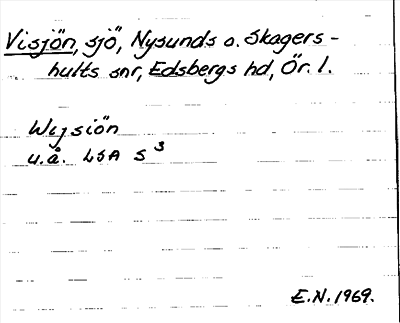 Visjön, sjö, Nysunds o. Skagers-
hults snr, Edsbergs hd, Ör. l.
Wijsiön
u.å. LSA S3
E.N. 1969.